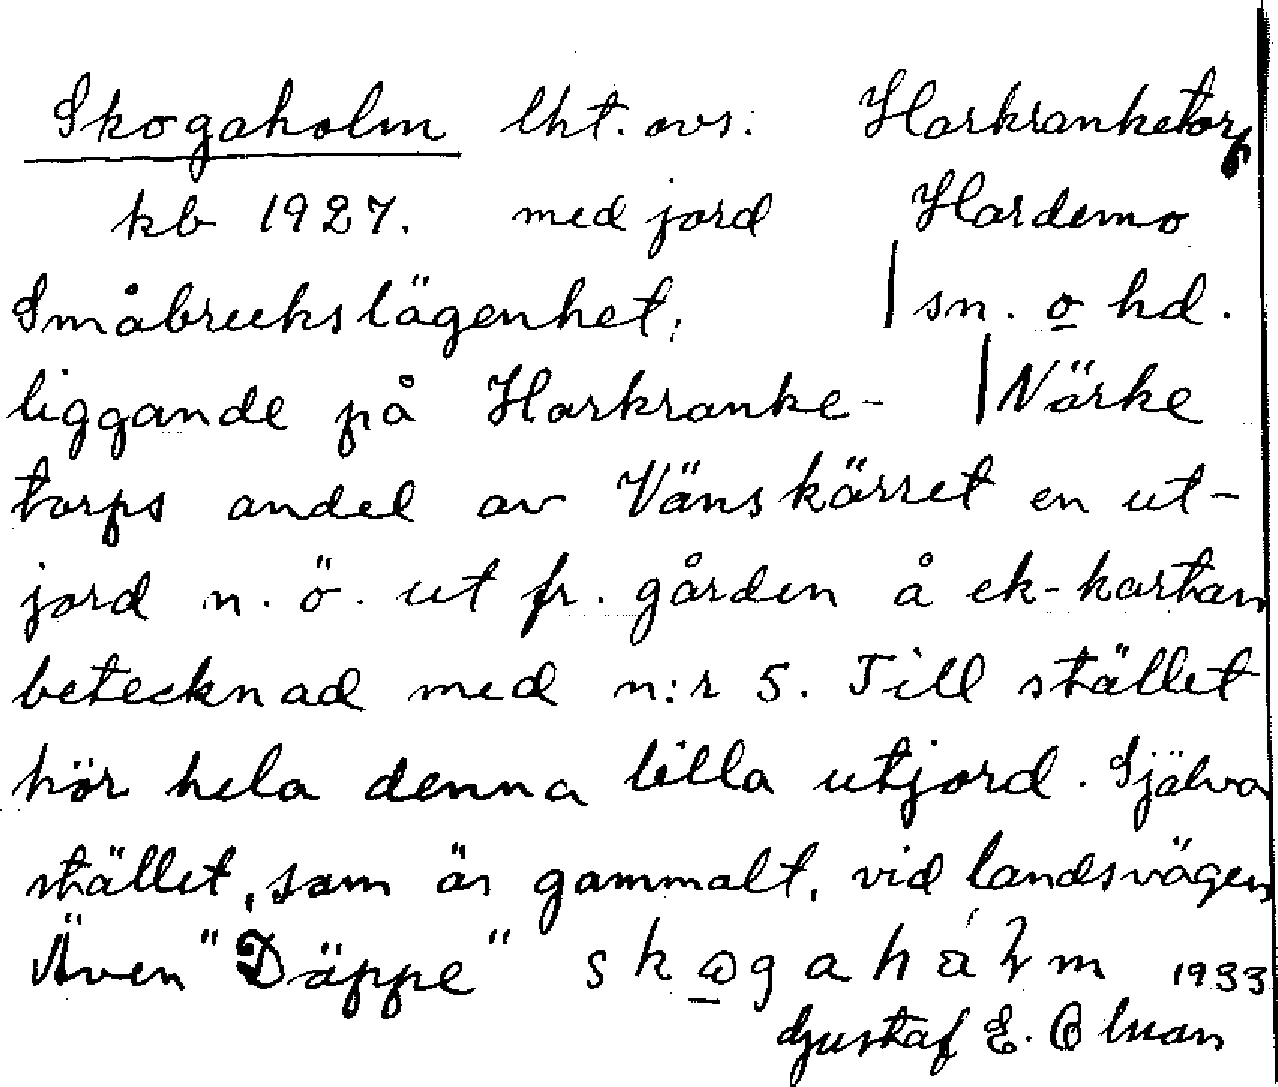 Skogaholm lht. avs. Harkranketorp
kb 1927. med jord Hardemo
Småbrukslägenhet, | sn. o hd.
liggande på Harkranke- | Närke
torps andel av Vänskärret en ut-
jord n. ö. ut fr. gården å ek-kartan
betecknad med n:r 5. Till stället
hör hela denna lilla utjord. Själva
stället, som är gammalt, vid landsvägen
Även "Däppe" 1933
Gustaf E.